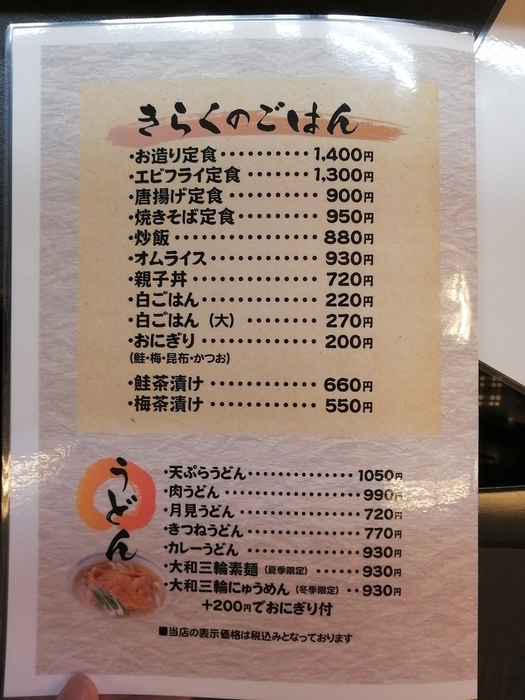 きらくのごはん
・お造り定食・・・・・・・・・・1,400円
・エビフライ定食・・・・・・・・1,300円
・唐揚げ定食・・・・・・・・・・900円
・焼きそば定食・・・・・・・・・950円
・炒飯・・・・・・・・・・・・・・880円
・オムライス・・・・・・・・・・・930円
・親子丼・・・・・・・・・・・・・720円
・白ごはん・・・・・・・・・・・・220円
・白ごはん（大）・・・・・・・・270円
・おにぎり・・・・・・・・・・・・200円
(鮭・梅・昆布・かつお)
・鮭茶漬け・・・・・・・・・・・・660円
・梅茶漬け・・・・・・・・・・・・550円
うどん
・天ぷらうどん・・・・・・・・・・・・・・1050円
・肉うどん・・・・・・・・・・・・・・・・・990円
・月見うどん・・・・・・・・・・・・・・・720円
・きつねうどん・・・・・・・・・・・・・・770円
・カレーうどん・・・・・・・・・・・・・・930円
・大和三輪素麺（夏季限定）・・・・・・930円
・大和三輪にゅうめん（冬季限定）・・930円
＋200円でおにぎり付
■当店の表示価格は税込みとなっております